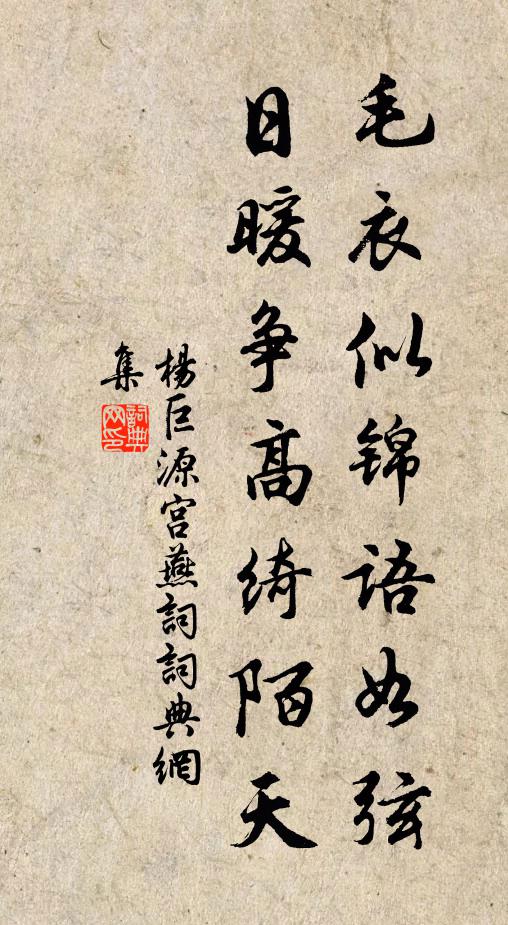 毛衣似锦语如弦
日暖争高绮陌天
楊巨源宫燕詞詞典網
集
詞典网印